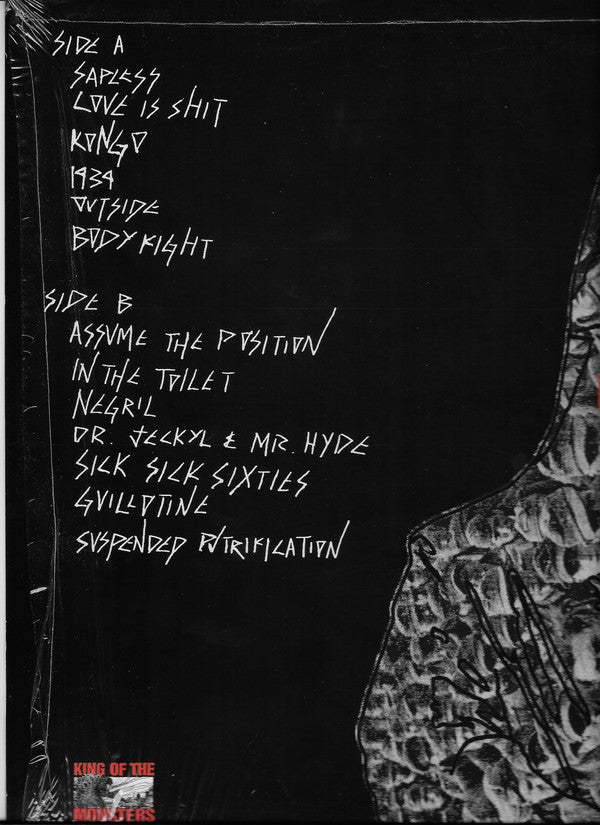 SIDE A
SAPLESS
LOVE IS SHIT
KONGO
1934
OUTSIDE
BODY KIGHT
SIDE B
ASSUME THE POSITION
IN THE TOILET
NEGRIL
DR. JECKYL & MR. HYDE
SICK SICK SIXTIES
GUILLOTINE
SUSPENDED PUTRIFICATION
KING OF THE
MONSTERS